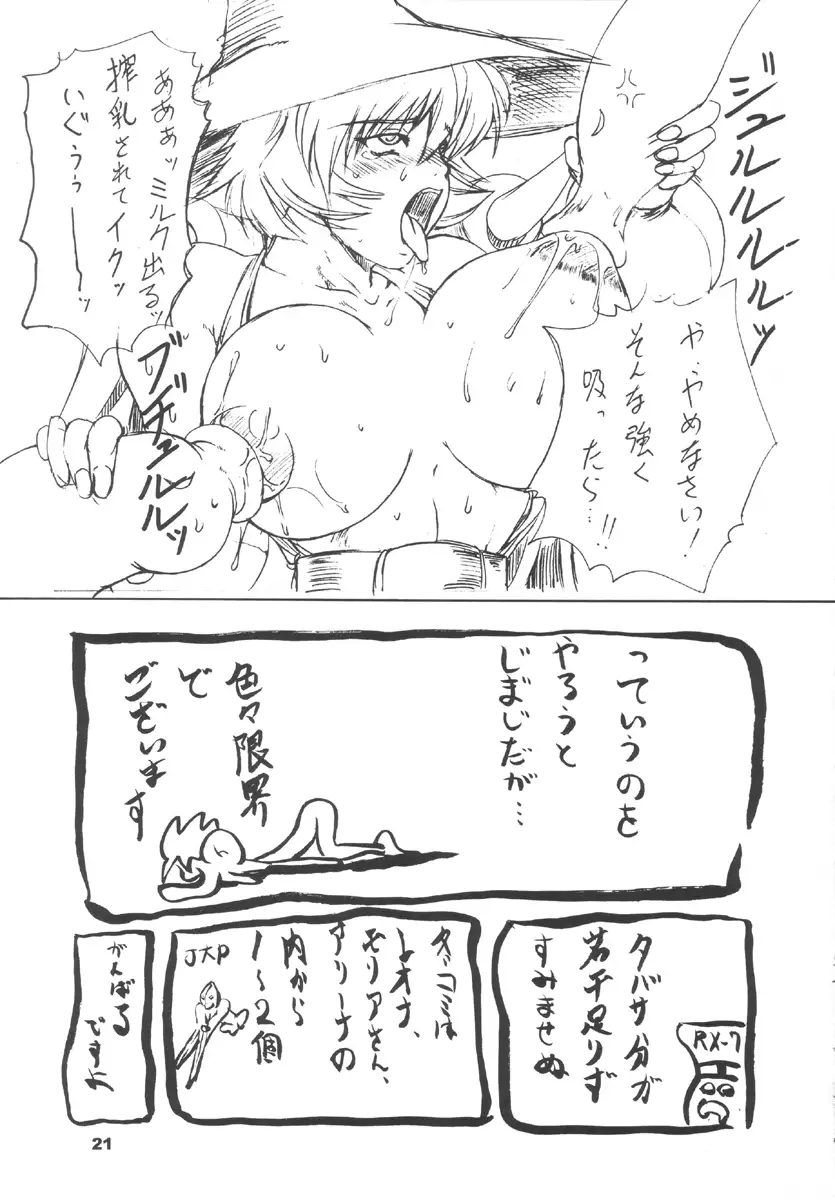 ジュルルルルッ
や、やめなさい!
そんな強く
吸ったら…!!
あああッミルク出るッ
搾乳されてイクッ
いぐぅぅ――ッ
ブヂュルルルッ
っていうのを
やろうと
じまじだが…
色々限界
で
ございます
タバサ分が
若干足りず
すみませぬ
RX-7
レオナ、
モリアさん、
アリーナの
内から
1〜2個
がんばる
ですよ
21